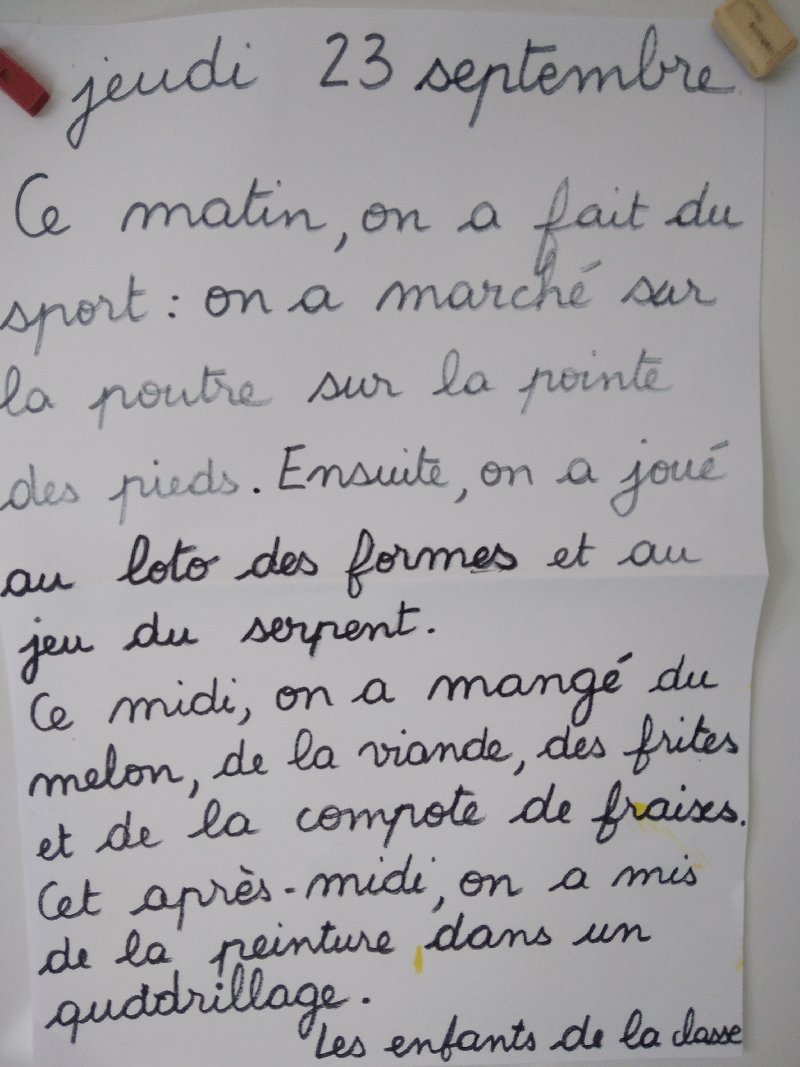 jeudi 23 septembre
Ce matin, on a fait du
sport : on a marché sur
la poutre sur la pointe
des pieds. Ensuite, on a joué
au loto des formes et au
jeu du serpent.
Ce midi, on a mangé du
melon, de la viande, des frites
et de la compote de fraises.
Cet après-midi, on a mis
de la peinture dans un
quddrillage.
Les enfants de la classe